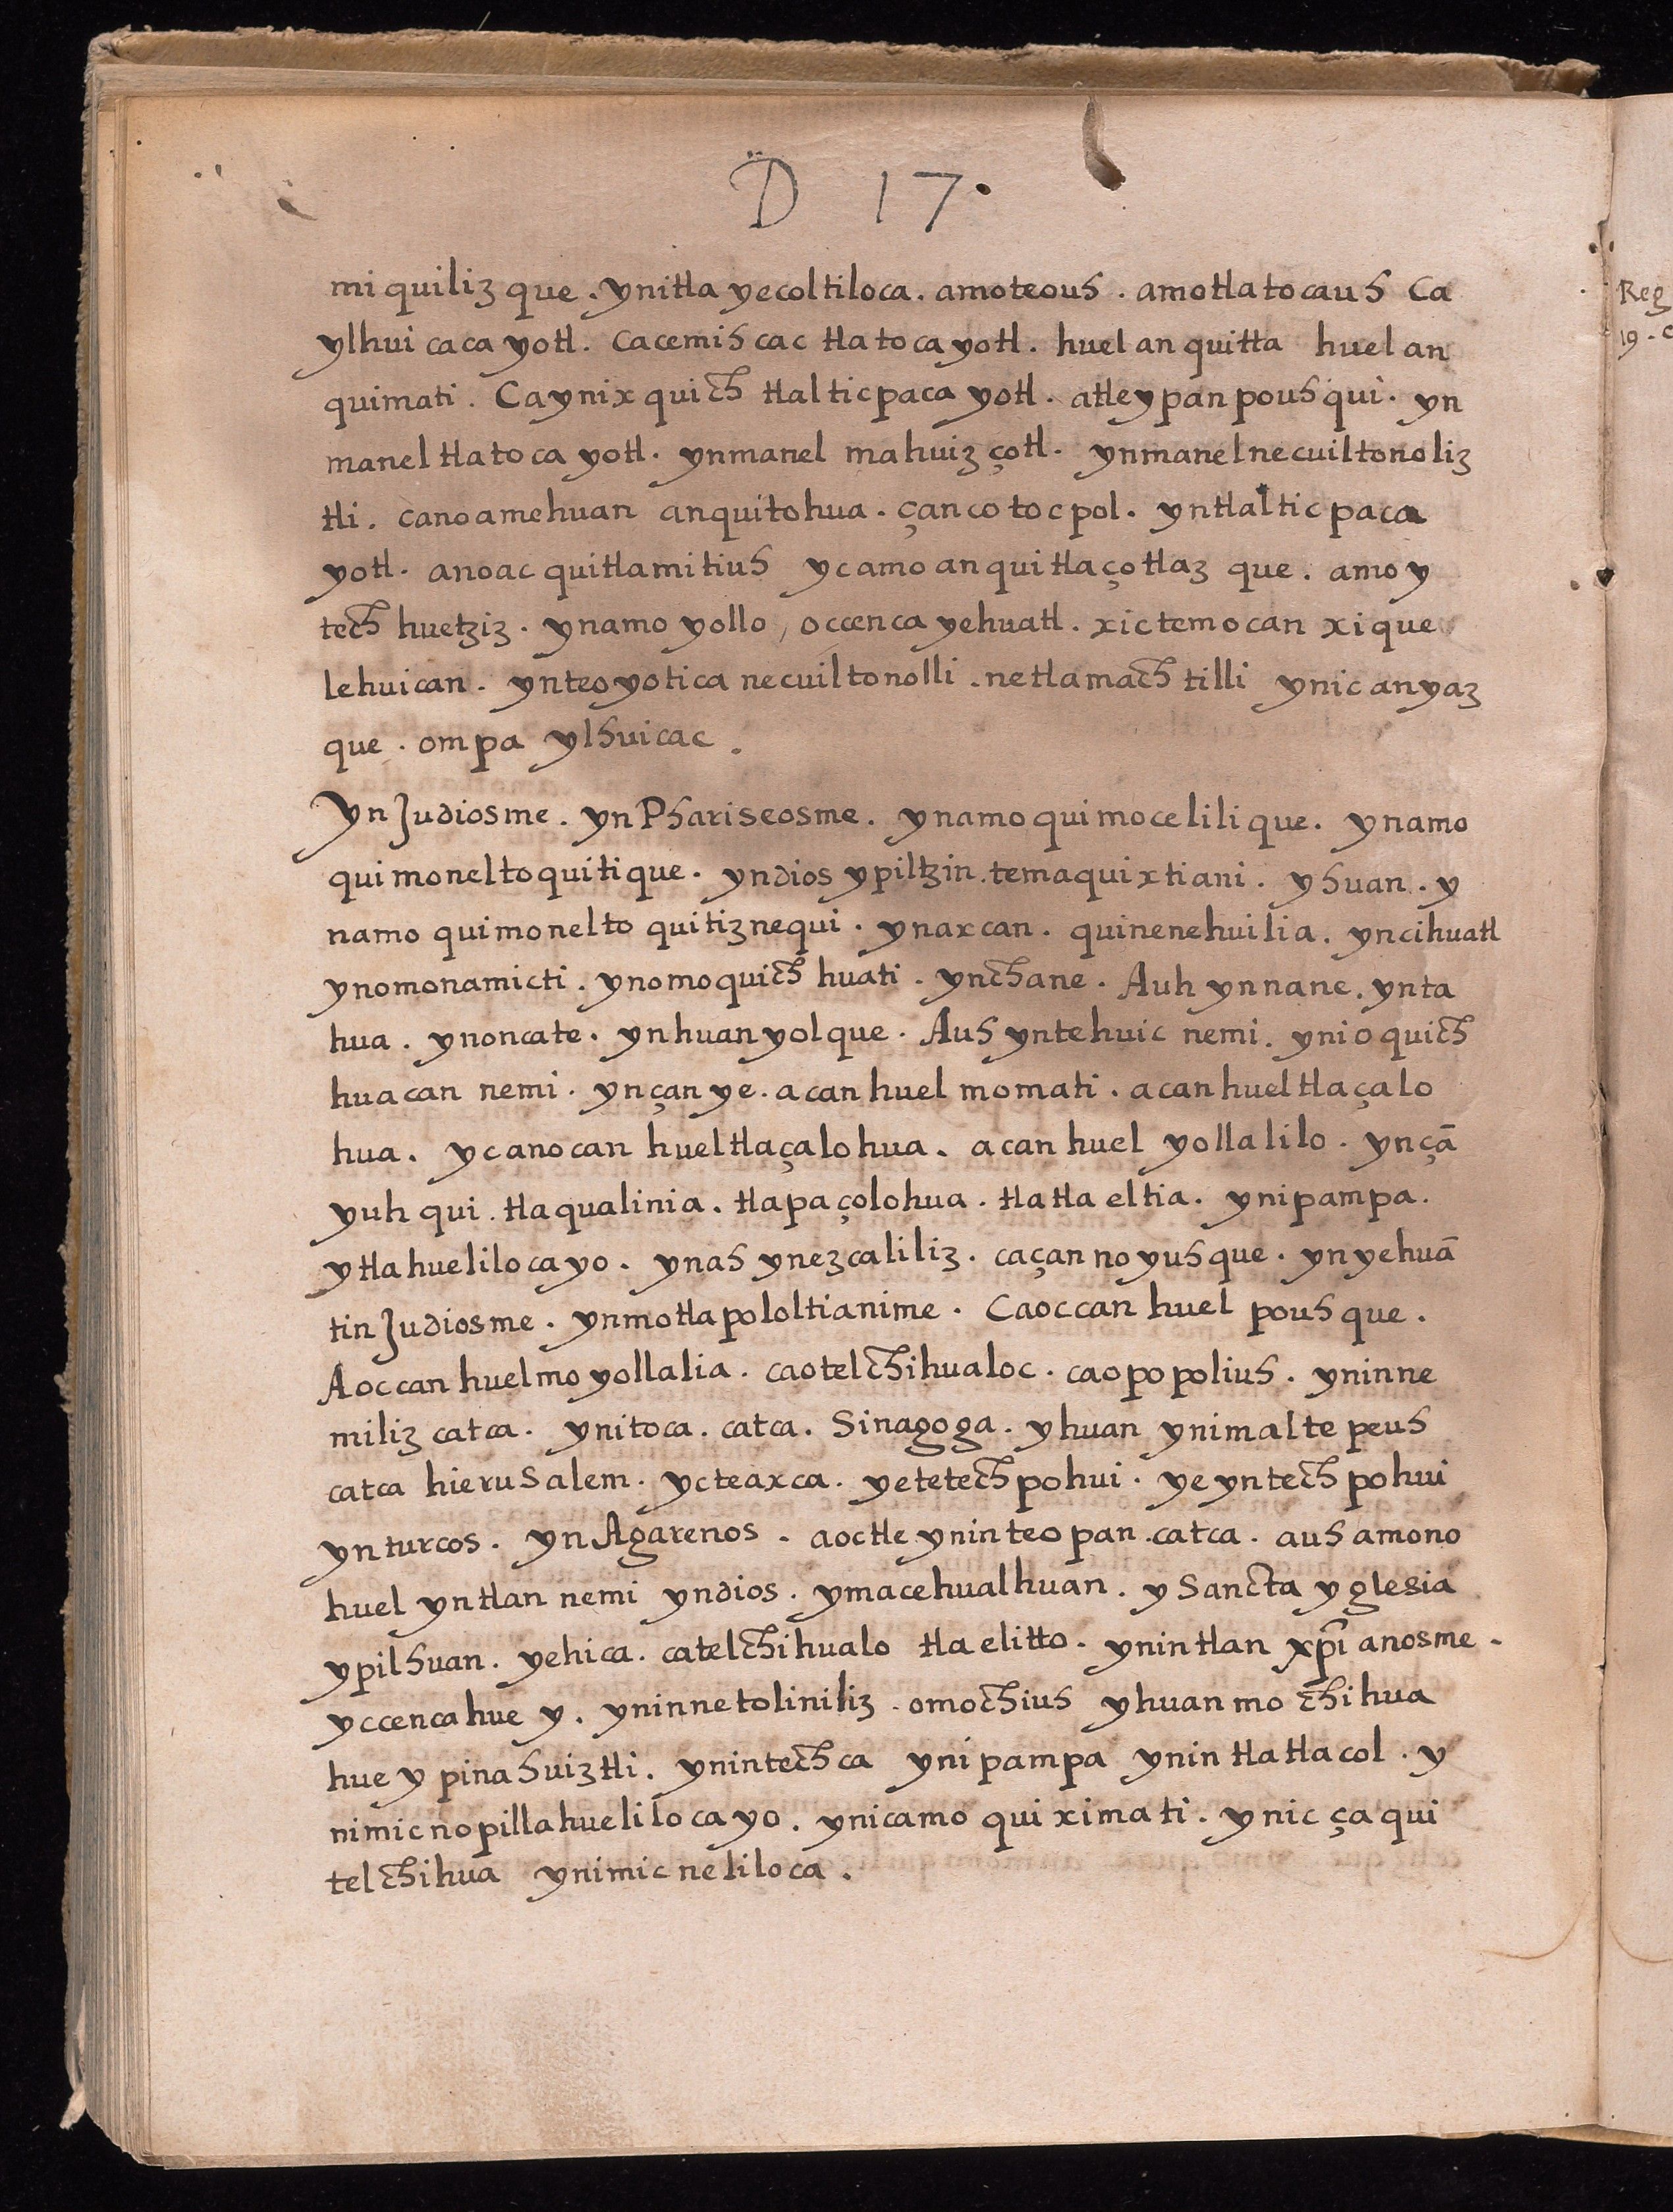 D 17.
miquilizque. ynitlayecoltiloca. amoteouh. amotlatocauh Ca
ylhuicacayotl. cacemihcac tlatocayotl. huel anquitta huel an
quimati. Caynixquich tlalticpacayotl. atleypanpouhqui. yn
maneltlatocayotl. ynmanel mahuizçotl. ynmanelnecuiltonoliz
tli. canoamehuan anquitohua. çancotocpol. yntlalticpaca
yotl. anoac quitlamitiuh ycamo anquitlaçotlazque. amo y
tech huetziz. ynamoyollo, occenca yehuatl. xictemocan xique
lehuican. ynteoyotica necuiltonolli. netlamachtilli ynicanyaz
que. ompa ylhuicac.
Yn Judiosme. ynPhariseosme. ynamoquimocelilique. ynamo
quimoneltoquitique. yndios ypiltzin. temaquixtiani. yhuan. y
namo quimoneltoquitiznequi. ynaxcan. quinenehuilia. yncihuatl
ynomonamicti. ynomoquichhuati. ynchane. Auh ynnane. ynta
hua. ynoncate. ynhuanyolque. Auh yntehuic nemi. ynioquich
huacan nemi. ynçanye. acanhuel momati. acanhueltlaçalo
hua. ycanocan hueltlaçalohua. acanhuel yollalilo. ynçā
yuhqui. tlaqualinia. tlapaçolohua. tlatlaeltia. ynipampa.
ytlahuelilocayo. ynah ynezcaliliz. caçannoyuhque. ynyehuā
tin Judiosme. ynmotlapololtianime. Caoccan huel pouhque.
Aoccan huelmoyollalia. caotelchihualoc. caopopoliuh. yninne
miliz catca. ynitoca. catca. Sinagoga. yhuan ynimaltepeuh
catca hierusalem. ycteaxca. yetetechpohui. yeyntechpohui
ynturcos. ynAgarenos. aoctle yninteopan. catca. auh amono
huel yntlan nemi yndios. ymacehualhuan. ySancta yglesia
ypilhuan. yehica. catelchihualo tlaelitto. ynintlan xp̄ianosme.
yccenca huey. yninnetoliniliz. omochiuh yhuan mochihua
huey pinahuiztli. ynintechca ynipampa ynintlatlacol. y
nimicnopillahuelilocayo. ynicamo quiximati. ynic çaqui
telchihua ynimicneliloca.
Reg
19. c